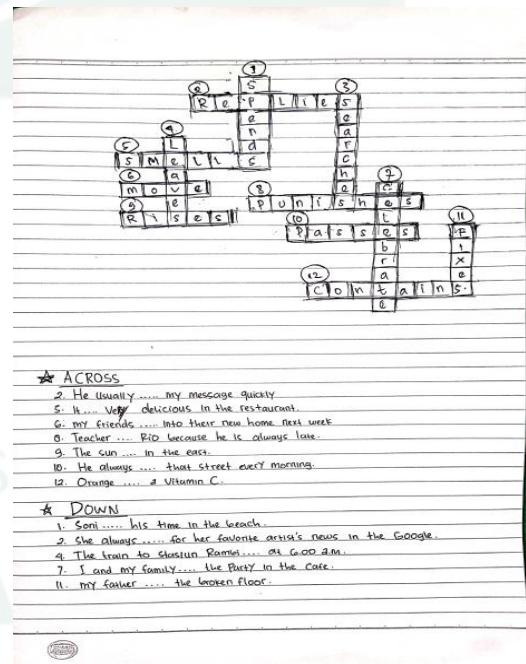 1
S
2
3
R e P L i e s
e e
4 n a
5 L d r
S M e L L s c
6 a h 7
m o v e 8 e C
9 e P u n i s h e s
R i s e s 10 L 11
P a s s e s F
b i
r x
12 a e
C o n t a i n s.
e
☆ ACROSS
2. He usually ..... my message quickly
5. It .... Very delicious in the restaurant.
6. my friends ..... into their new home next week
8. Teacher .... Rio because he is always late.
9. The sun .... in the east.
10. He always .... that street every morning.
12. Orange .... a Vitamin C.
☆ DOWN
1. Soni ..... his time in the beach.
2. She always ..... for her favorite artist's news in the Google.
4. The train to Stasiun Rambi.... at 6.00 a.m.
7. I and my family.... the Party in the Cafe.
11. my father .... the broken floor.